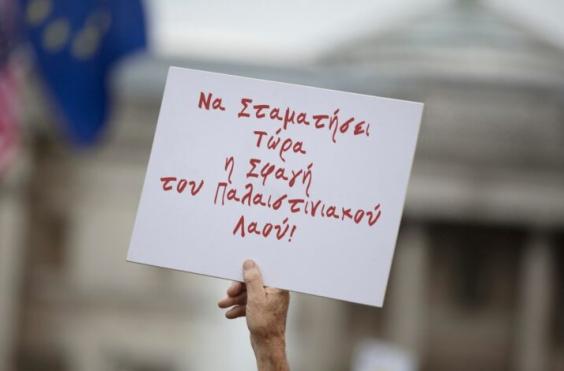 Να Σταματήσει
Τώρα
η Σφαγή
του Παλαιστινιακού
Λαού!